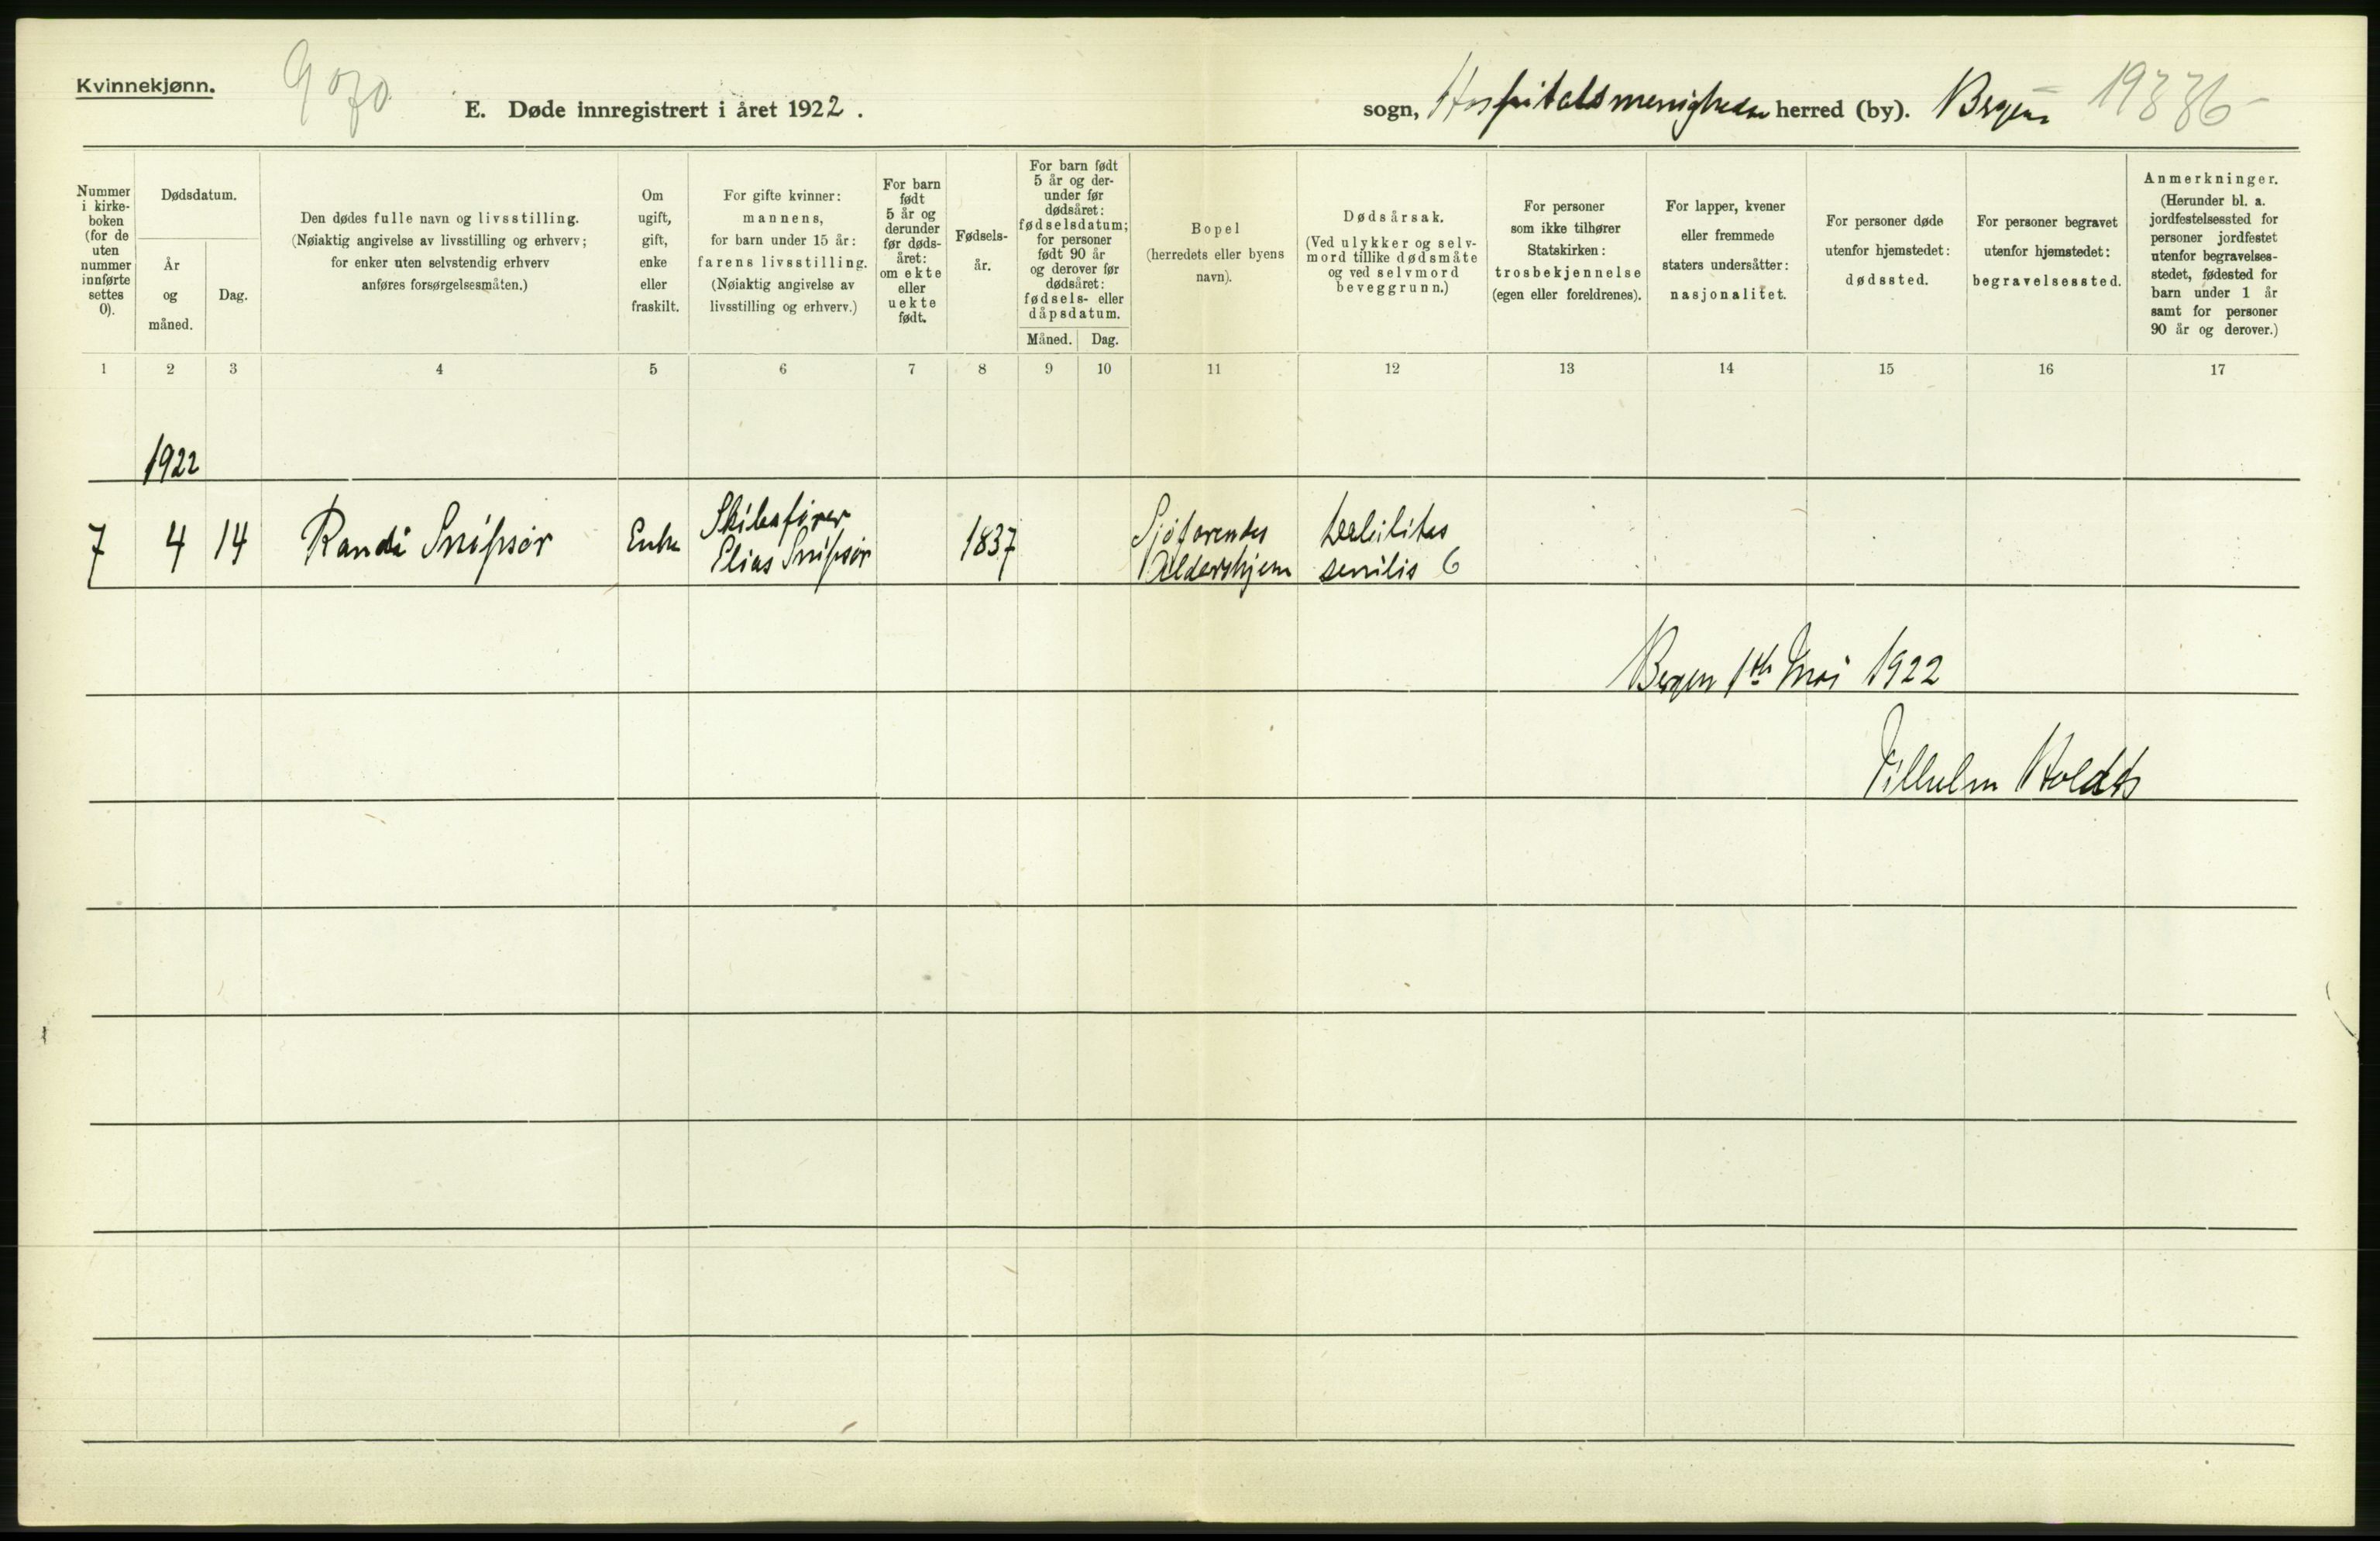 Kvinnekjønn.
9070
E. Døde innregistrert i året 1922.
sogn, Hospitalsmenigheden herred (by). Bergen
Nummer i kirke-boken (for de uten nummer innførte settes 0).
Dødsdatum.
År og måned.
Dag.
Den dødes fulle navn og livsstilling.
(Nøiaktig angivelse av livsstilling og erhverv;
for enker uten selvstendig erhverv
anføres forsørgelsesmåten.)
Om ugift, gift, enke eller fraskilt.
For gifte kvinner:
mannens,
for barn under 15 år:
farens livsstilling.
(Nøiaktig angivelse av
livsstilling og erhverv.)
For barn født 5 år og derunder før døds-året: om ekte eller uekte født.
Fødsels-år.
For barn født 5 år og der-under før dødsåret: fødselsdatum; for personer født 90 år og derover før dødsåret: fødsels- eller dåpsdatum.
Måned.
Dag.
Bopel
(herredets eller byens
navn).
Dødsårsak.
(Ved ulykker og selv-
mord tillike dødsmåte
og ved selvmord
beveggrunn.)
For personer
som ikke tilhører
Statskirken:
trosbekjennelse
(egen eller foreldrenes).
For lapper, kvener
eller fremmede
staters undersåtter:
nasjonalitet.
For personer døde
utenfor hjemstedet:
dødssted.
For personer begravet
utenfor hjemstedet:
begravelsessted.
Anmerkninger.
(Herunder bl. a.
jordfestelsessted for
personer jordfestet
utenfor begravelses-
stedet, fødested for
barn under 1 år
samt for personer
90 år og derover.)
1 2 3 4 5 6 7 8 9 10 11 12 13 14 15 16 17
1922
7 4 14 Randi Snipsør Enke Skibsfører Elias Snipsør 1837 Sjøfarendes Aldershjem Debilitas senilis 6
Bergen 1ste Mai 1922
Vilhelm Holdt